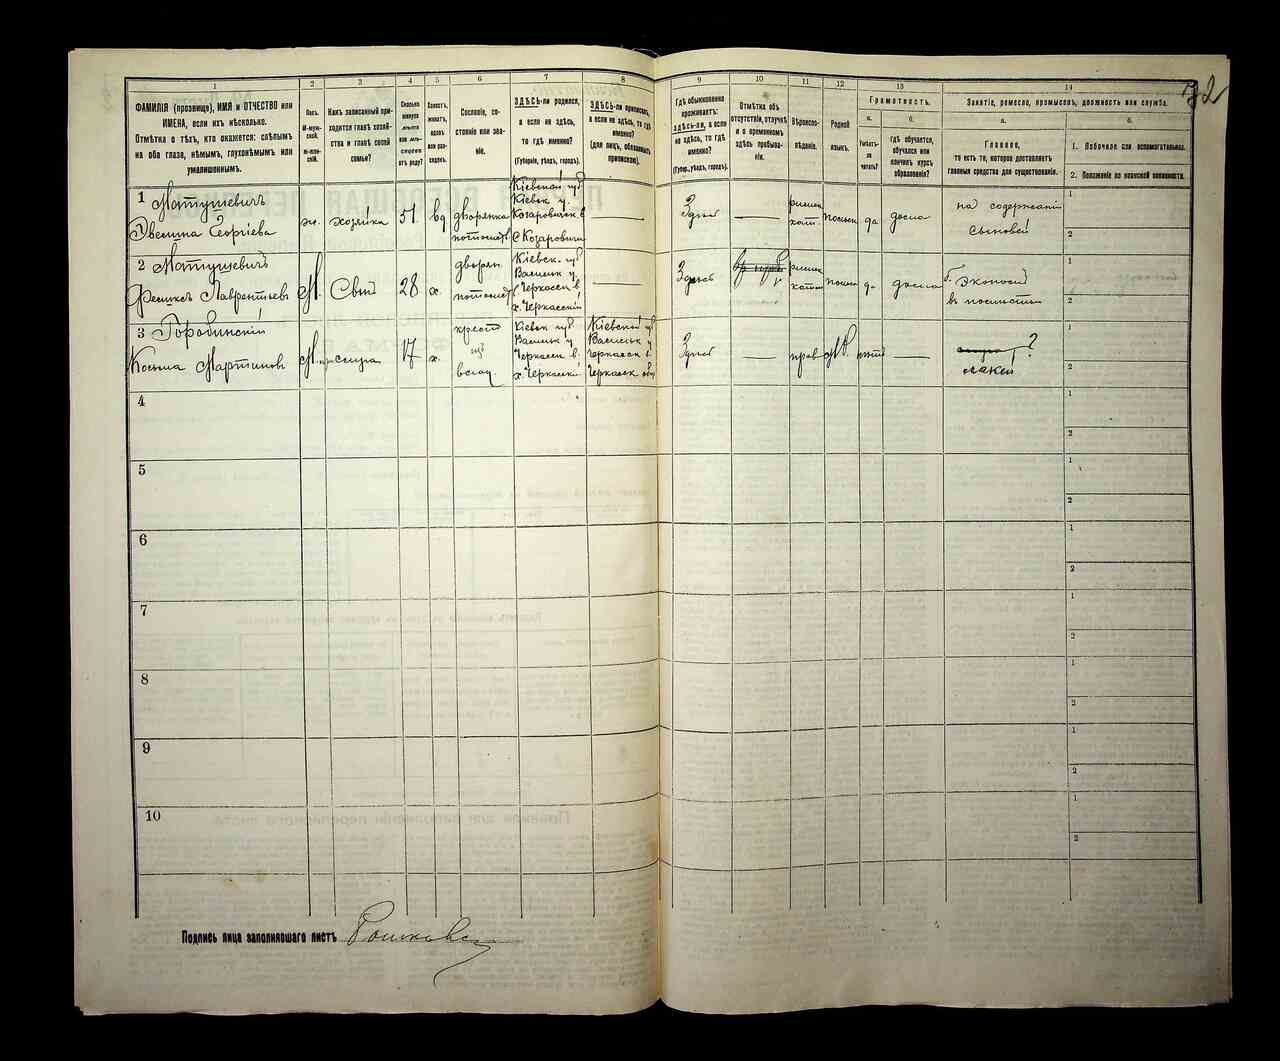 32
1
2
3
4
5
6
7
8
9
10
11
12
13
14
ФАМИЛІЯ (прозвище), ИМЯ и ОТЧЕСТВО или
ИМЕНА, если ихъ нѣсколько.
Отмѣтка о тѣхъ, кто окажется: слѣпымъ
на оба глаза, нѣмымъ, глухонѣмымъ или
умалишеннымъ.
Полъ.
М-муж-
ской.
Ж-жен-
скій.
Какъ записанный при-
ходится главѣ хозяй-
ства и главѣ своей
семьи?
Сколько
минуло
лѣтъ
или мѣ-
сяцевъ
отъ роду?
Холостъ,
женатъ,
вдовъ
или раз-
веденъ.
Сословіе, со-
стояніе или зва-
ніе.
ЗДѢСЬ-ли родился,
а если не здѣсь,
то гдѣ именно?
(Губернія, уѣздъ, городъ).
ЗДѢСЬ-ли приписанъ,
а если не здѣсь, то гдѣ
именно?
(для лицъ, обязанныхъ
припискою).
Гдѣ обыкновенно
проживаетъ:
ЗДѢСЬ-ли, а если
не здѣсь, то гдѣ
именно?
(Губер., уѣздъ, городъ).
Отмѣтка объ
отсутствіи, отлучкѣ
и о временномъ
здѣсь пребыва-
ніи.
Вѣроиспо-
вѣданіе.
Родной
языкъ.
Грамотность.
а.
б.
Умѣетъ-
ли
читать?
гдѣ обучается,
обучался или
кончилъ курсъ
образованія?
Занятіе, ремесло, промыселъ, должность или служба.
а.
б.
Главное,
то есть то, которое доставляетъ
главныя средства для существованія.
1. Побочное или вспомогательное.
2. Положеніе по воинской повинности.
1
Матушевичъ
Эвелина Георгіева
ж.
хозяйка
51
вд
дворянка
потомств
Кіевской губ
Кіевск у.
Козаровичск в
с Козаровичи
Здѣсь
римск
кат.
польск
да
дома
на содержаніи
сыновей
1
2
2
Матушевичъ
Феликсъ Лаврентьевъ
М.
Сынъ
28
х.
дворян
потомст
Кіевск. губ
Васильк у.
Черкасск в
х. Черкасскій
Здѣсь
римск
катол
польск
да
дома
Экономъ
1
2
3
Горобинскій
Косьма Мартиновъ
М.
17
х.
крест
изъ
Кіевск губ.
Васильк у
Черкасск в.
х. Черкасскій
Кіевской губ
Васильк у
Черкасск в
Черкасск общ
Здѣсь
прав
М. Р.
нѣтъ
?
лакей
1
2
4
1
2
5
1
2
6
1
2
7
1
2
8
1
2
9
1
2
10
1
2
Подпись лица заполнявшаго листъ